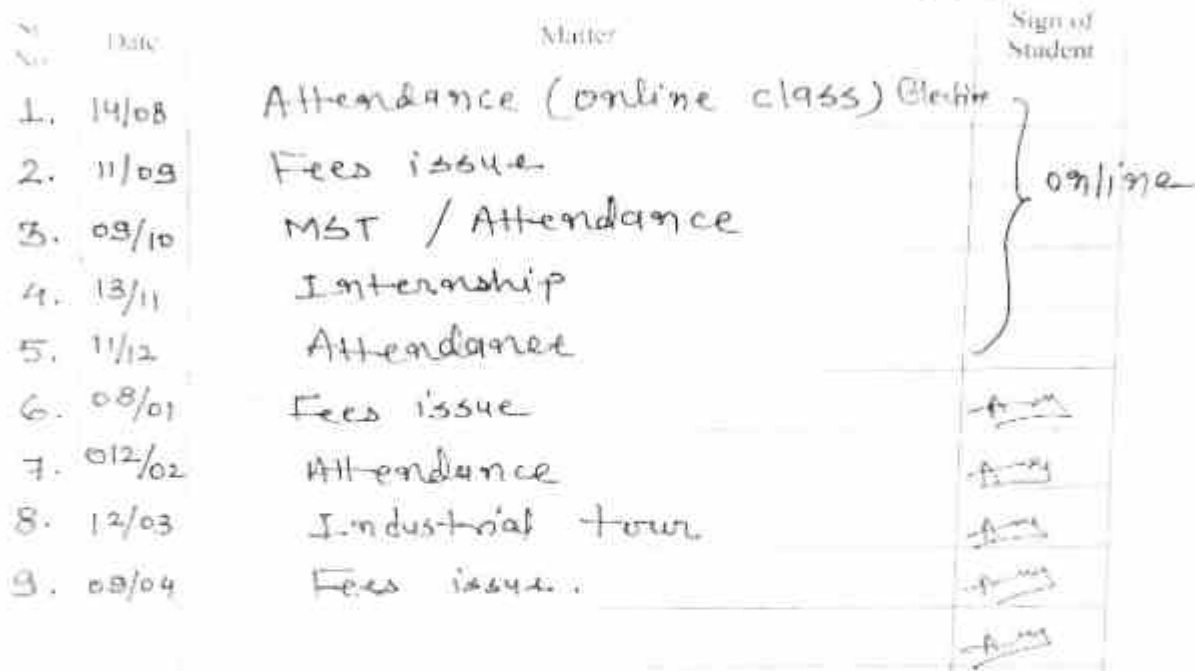 Sl No. Date Matter Sign of Student
1. 14/08 Attendance (online class) Elective
2. 11/09 Fees issue
online
3. 09/10 MST / Attendance
4. 13/11 Internship
5. 11/12 Attendance
6. 08/01 Fees issue
7. 012/02 Attendance
8. 12/03 Industrial tour
9. 09/04 Fees issue.